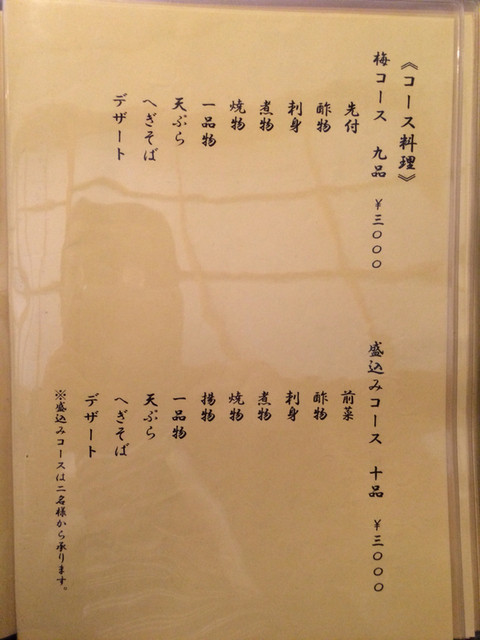 《コース料理》
梅コース 九品 ¥三〇〇〇
先付
酢物
刺身
煮物
焼物
一品物
天ぷら
へぎそば
デザート
盛込みコース 十品 ¥三〇〇〇
前菜
酢物
刺身
煮物
焼物
揚物
一品物
天ぷら
へぎそば
デザート
※盛込みコースは二名様から承ります。